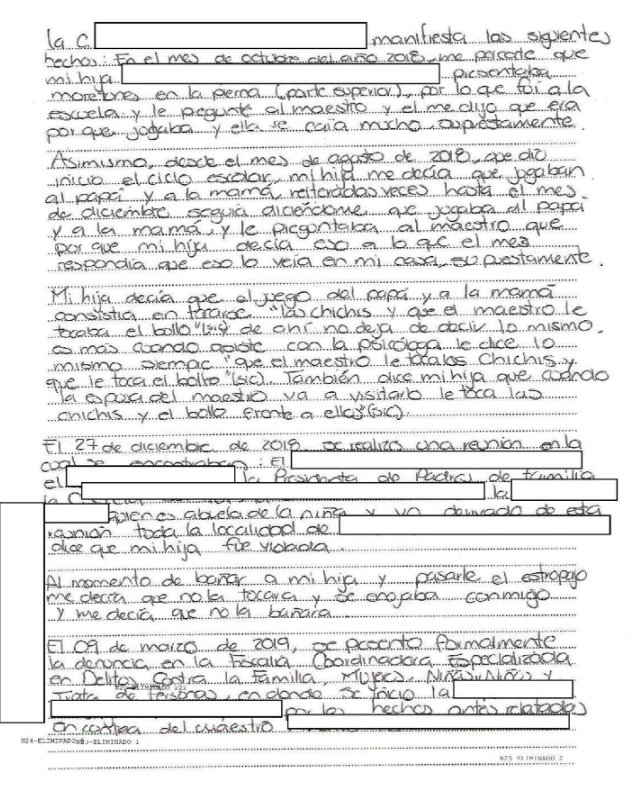 la C. manifiesta los siguientes
hechos: En el mes de octubre del año 2018, me percate que
mi hija presentaba
moretones en la pierna (parte superior), por lo que fui a la
escuela y le pregunté al maestro y el me dijo que era
por que jugaba y ella se caía mucho, supuestamente.
Asimismo, desde el mes de agosto de 2018, que dio
inicio el ciclo escolar, mi hija me decía que jugaban
al papá y a la mamá, reiteradas veces hasta el mes
de diciembre seguía diciéndome que jugaba al papá
y a la mamá, y le preguntaba al maestro que
por que mi hija decía eso a lo que el me
respondía que eso lo veía en mi casa, supuestamente.
Mi hija decía que el juego del papá y a la mamá
consistia en tocarse "las chichis y que el maestro le
tocaba el bollo" (sic) de ahí no deja de decir lo mismo,
es más cuando asiste con la psicóloga le dice lo
mismo siempre "que el maestro le toca las chichis y
que le toca el bollo" (sic). También dice mi hija que cuando
la esposa del maestro va a visitarlo le toca las
chichis y el bollo frente a ella" (sic).
El 27 de diciembre de 2018 se realizo una reunión en la
cual se encontraban: El
el la Presidenta de Padres de familia
la C. la
quien es abuela de la niña y yo derivado de esta
reunión toda la localidad de
dice que mi hija fue violada.
Al momento de bañar a mi hija y pasarle el estropajo
me decía que no la tocara y se enojaba conmigo
y me decía que no la bañara.
El 09 de marzo de 2019, se presento formalmente
la denuncia en la Fiscalía Coordinadora Especializada
en Delitos Contra la Familia, Mujeres, Niñas, Niños y
Trata de Personas, en donde se inicio la
por los hechos antes relatados
en contra del maestro
N23 ELIMINADO 2